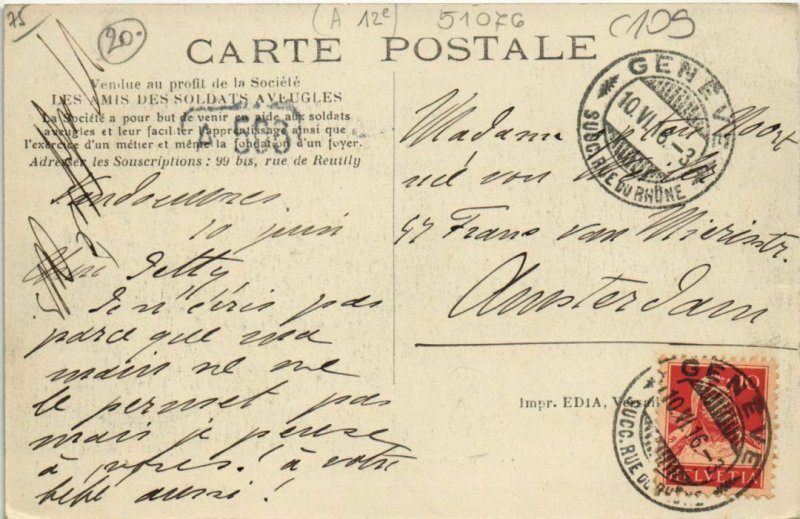 75
20.
(A 12e)
51076
C109
CARTE POSTALE
Vendue au profit de la Société
LES AMIS DES SOLDATS AVEUGLES
La Société a pour but de venir en aide aux soldats
aveugles et leur faciliter l'apprentissage ainsi que
l'exercice d'un métier et même la fondation d'un foyer.
Adresser les Souscriptions : 99 bis, rue de Reuilly
10 juin
Chère Detty
Je n'écris pas
parce que ma
main ne me
le permet pas
mais je pense
à vous! à votre
bébé aussi!
GENÈVE
10.VI.16.-3
SUCC. RUE DU RHÔNE
Madame
née von
47 Frans van Mierisstr.
Amsterdam
Impr. EDIA, Versail
10
HELVETIA
GENÈVE
10.VI.16-3
SUCC. RUE DU RHÔNE